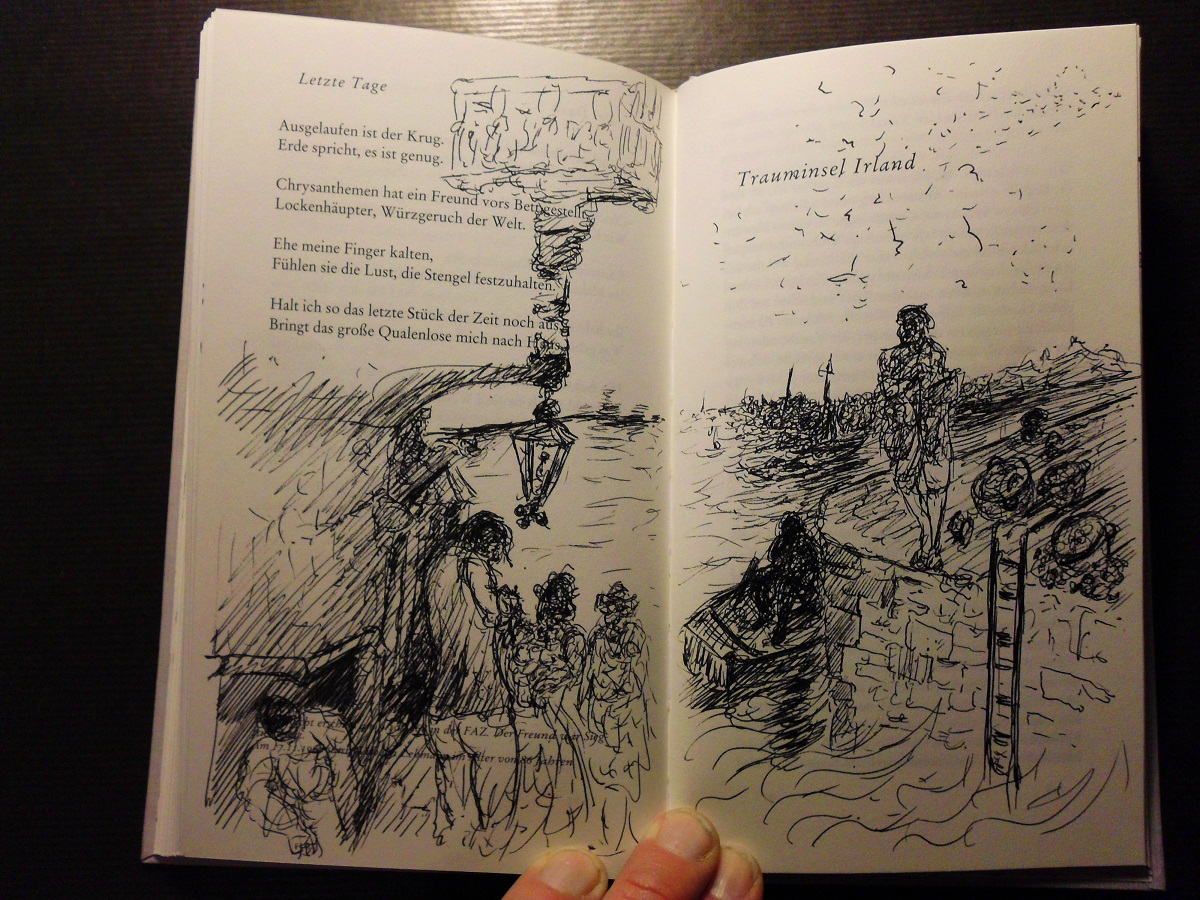 Letzte Tage
Ausgelaufen ist der Krug.
Erde spricht, es ist genug.
Chrysanthemen hat ein Freund vors Bett gestellt,
Lockenhäupter, Würzgeruch der Welt.
Ehe meine Finger kalten,
Fühlen sie die Lust, die Stengel festzuhalten.
Halt ich so das letzte Stück der Zeit noch aus,
Bringt das große Qualenlose mich nach Haus.
in der FAZ. Der Freund war
Am im Alter von 86 Jahren
Trauminsel Irland